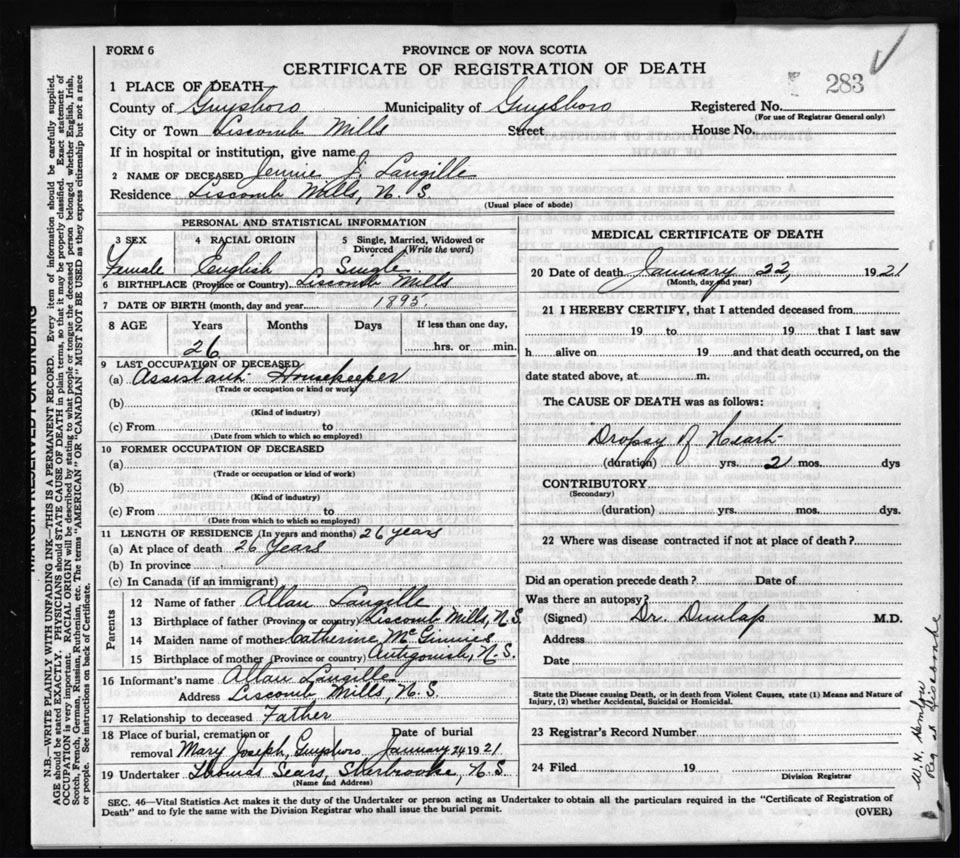 FORM 6
PROVINCE OF NOVA SCOTIA
CERTIFICATE OF REGISTRATION OF DEATH
283
1 PLACE OF DEATH
County of Guysboro Municipality of Guysboro Registered No.
(For use of Registrar General only)
City or Town Liscomb Mills Street House No.
If in hospital or institution, give name
2 NAME OF DECEASED Jennie J. Langille
Residence Liscomb Mills, N. S.
(Usual place of abode)
PERSONAL AND STATISTICAL INFORMATION
3 SEX 4 RACIAL ORIGIN 5 Single, Married, Widowed or Divorced (Write the word)
Female English Single
6 BIRTHPLACE (Province or Country) Liscomb Mills
7 DATE OF BIRTH (month, day and year) 1895.
8 AGE Years Months Days If less than one day,
26 hrs. or min.
9 LAST OCCUPATION OF DECEASED
(a) Assistant Housekeeper
(Trade or occupation or kind or work)
(b)
(Kind of industry)
(c) From to
(Date from which to which so employed)
10 FORMER OCCUPATION OF DECEASED
(a)
(Trade or occupation or kind of work)
(b)
(Kind of Industry)
(c) From to
(Date from which to which so employed)
11 LENGTH OF RESIDENCE (In years and months) 26 years
(a) At place of death 26 Years
(b) In province
(c) In Canada (if an immigrant)
Parents
12 Name of father Allan Langille
13 Birthplace of father (Province or country) Liscomb Mills, N. S.
14 Maiden name of mother Catherine McGinnies
15 Birthplace of mother (Province or country) Antigonish, N. S.
16 Informant's name Allan Langille
Address Liscomb Mills, N. S.
17 Relationship to deceased Father
18 Place of burial, cremation or Date of burial
removal Mary Joseph, Guysboro January 24 1921
19 Undertaker Thomas Sears, Sherbrooke, N. S.
(Name and Address)
MEDICAL CERTIFICATE OF DEATH
20 Date of death January 22, 1921
(Month, day and year)
21 I HEREBY CERTIFY, that I attended deceased from
19 to 19 that I last saw
h alive on 19 and that death occurred, on the
date stated above, at m.
The CAUSE OF DEATH was as follows:
Dropsy of Heart
(duration) yrs. 2 mos. dys
CONTRIBUTORY
(Secondary)
(duration) yrs. mos. dys.
22 Where was disease contracted if not at place of death?
Did an operation precede death? Date of
Was there an autopsy?
(Signed) Dr. Dunlap M.D.
Address
Date
State the Disease causing Death, or in death from Violent Causes, state (1) Means and Nature of
Injury, (2) whether Accidental, Suicidal or Homicidal.
23 Registrar's Record Number
24 Filed 19
Division Registrar
SEC. 46—Vital Statistics Act makes it the duty of the Undertaker or person acting as Undertaker to obtain all the particulars required in the "Certificate of Registration of
Death" and to fyle the same with the Division Registrar who shall issue the burial permit.
(OVER)
MARGIN RESERVED FOR BINDING
N.B.—WRITE PLAINLY WITH UNFADING INK—THIS IS A PERMANENT RECORD. Every item of information should be carefully supplied.
AGE should be stated EXACTLY. PHYSICIANS should STATE CAUSE OF DEATH in plain terms, so that it may be properly classified. Exact statement of
OCCUPATION is very important. RACIAL ORIGIN will be described by stating to what people or tongue the deceased person belonged whether English, Irish,
Scotch, French, German, Russian, Ruthenian, etc. The terms "AMERICAN" OR "CANADIAN" MUST NOT BE USED as they express citizenship but not a race
or people. See instructions on back of Certificate.